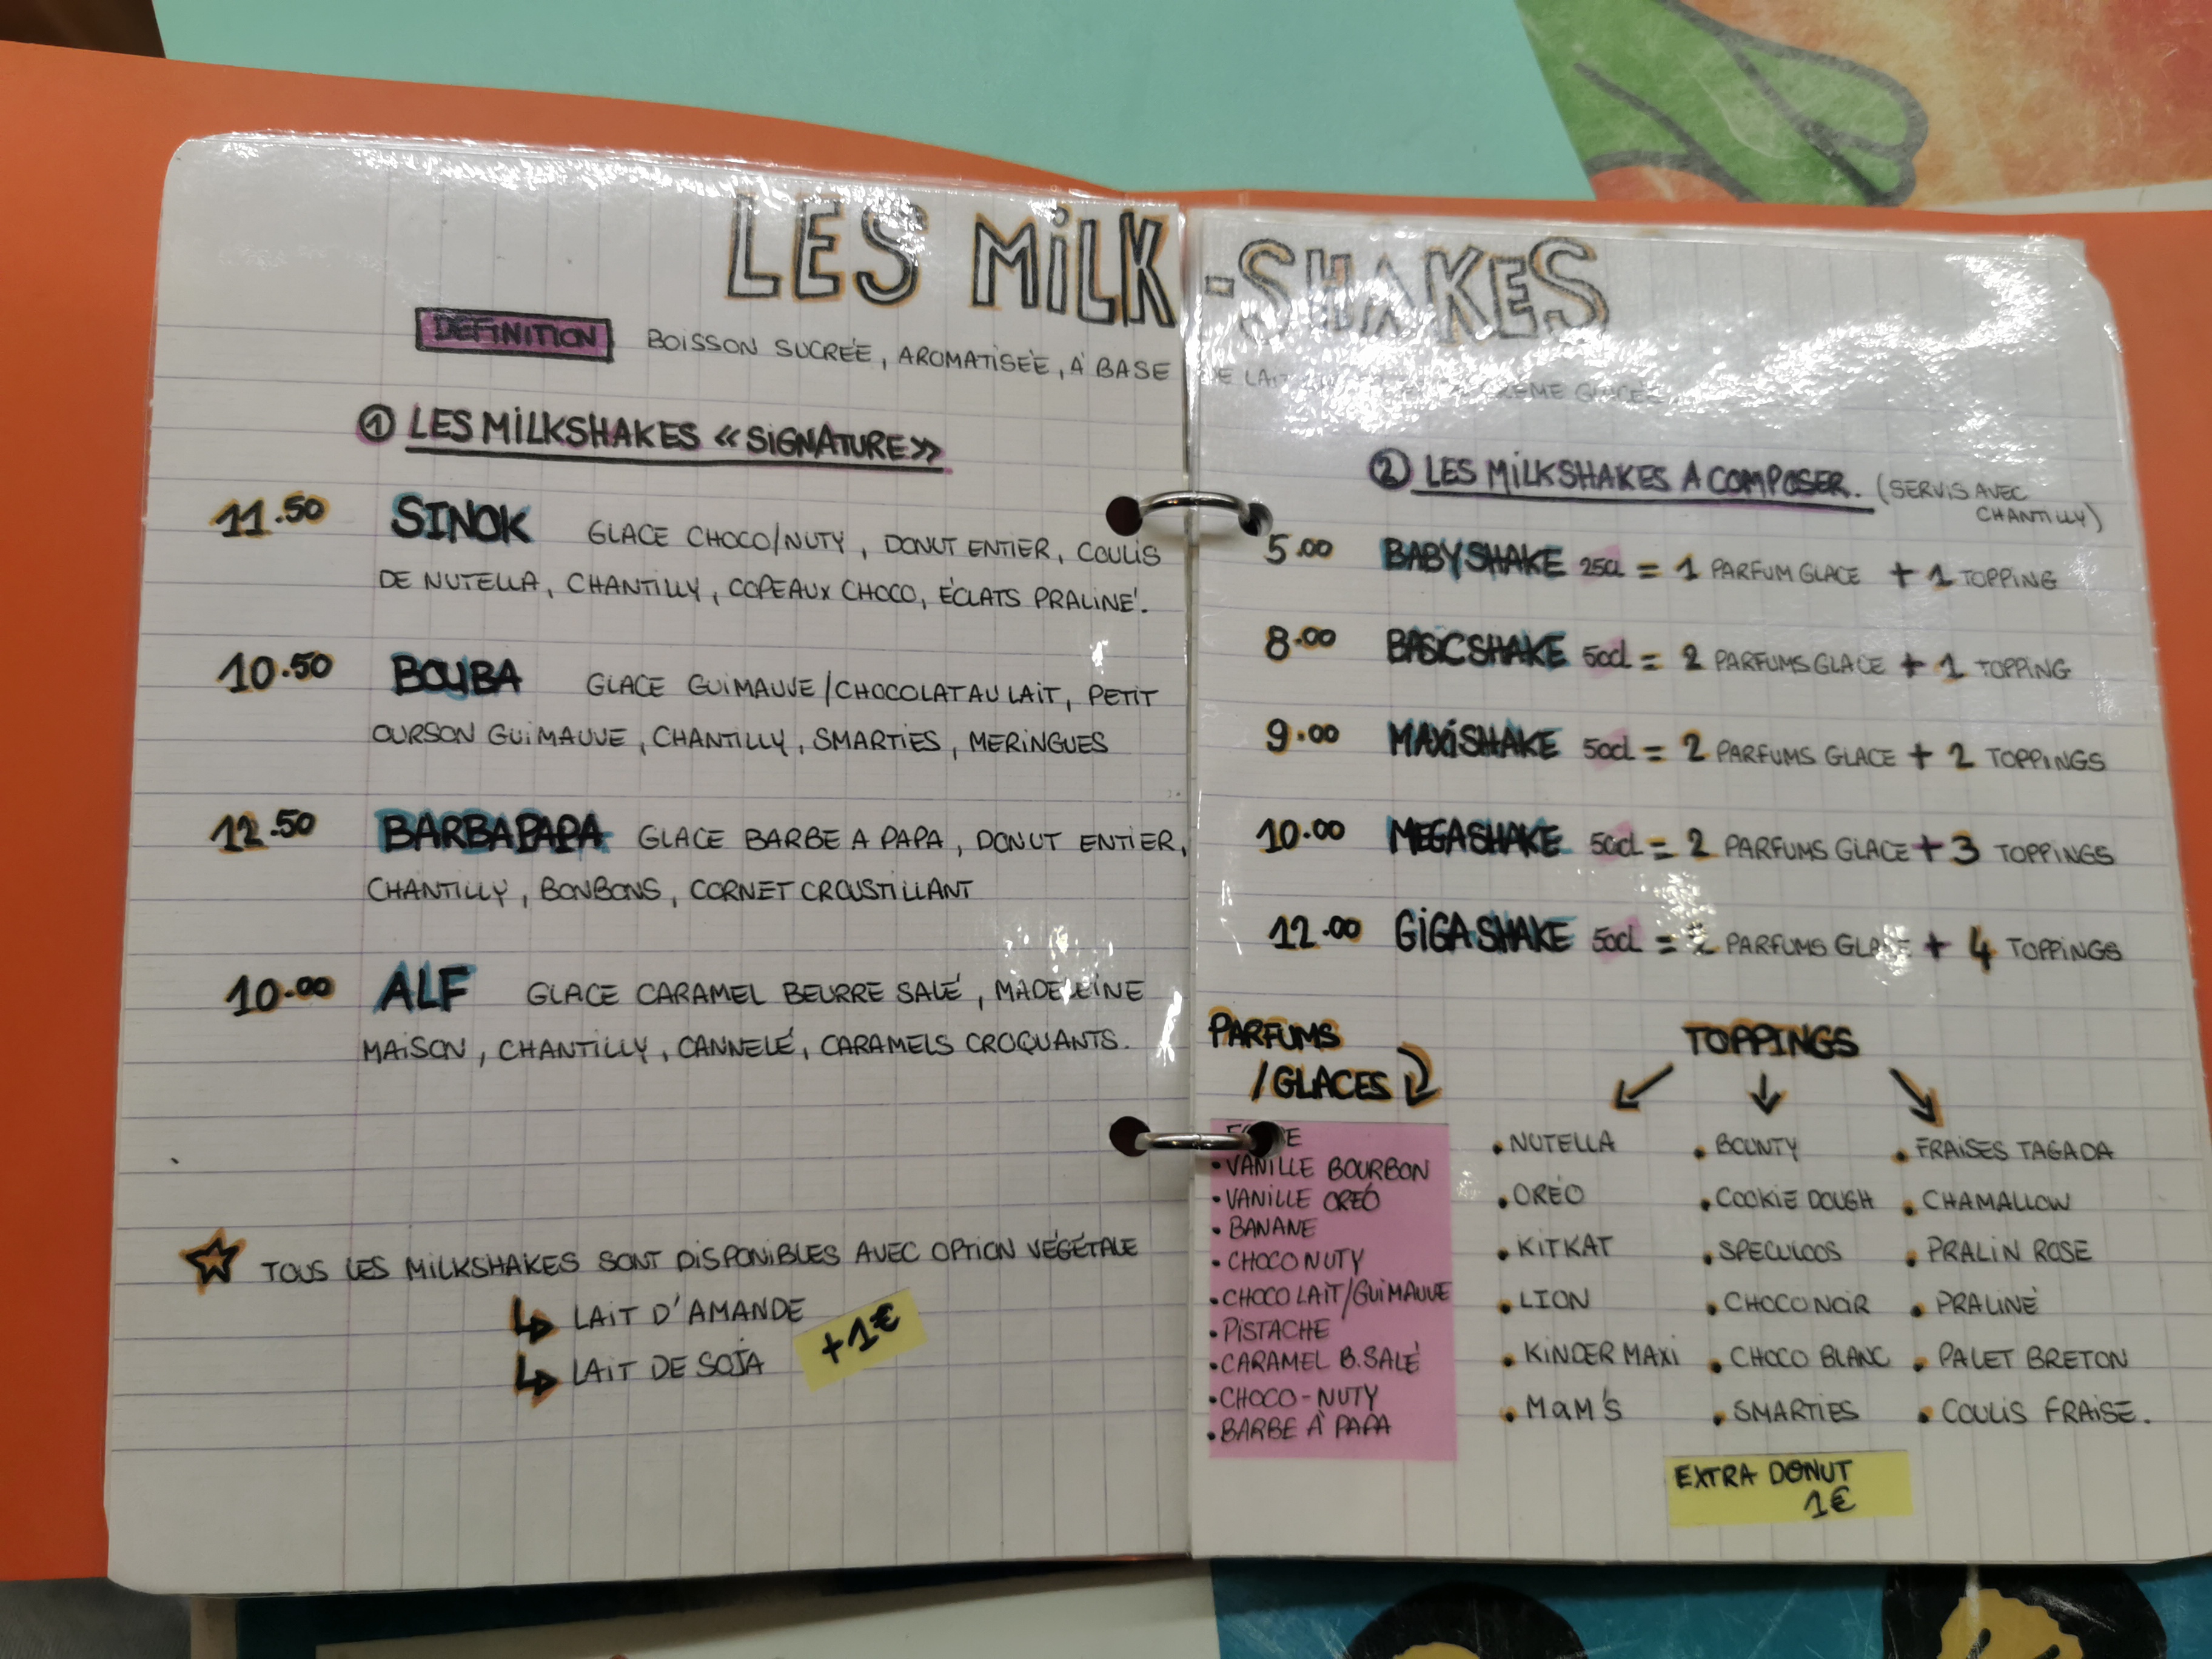 LES MiLK-SHAKES
DÉFINITION BOISSON SUCRÉE, AROMATISÉE, À BASE DE LAIT CRÈME GLACÉE
① LES MiLKSHAKES « SiGNATURE »
11.50 SINOK GLACE CHOCO/NUTY, DONUT ENTIER, COULIS
DE NUTELLA, CHANTILLY, COPEAUX CHOCO, ÉCLATS PRALINÉ.
10.50 BOUBA GLACE GUiMAUVE/CHOCOLAT AU LAiT, PETIT
OURSON GUiMAUVE, CHANTILLY, SMARTiES, MERiNGUES
12.50 BARBAPAPA GLACE BARBE A PAPA, DONUT ENTIER,
CHANTILLY, BONBONS, CORNET CROUSTILLANT
10.00 ALF GLACE CARAMEL BEURRE SALÉ, MADELEINE
MAiSON, CHANTILLY, CANNELÉ, CARAMELS CROQUANTS.
☆ TOUS LES MiLKSHAKES SONT DiSPONiBLES AVEC OPTION VÉGÉTALE
↳ LAiT D'AMANDE
↳ LAiT DE SOJA
+1€
② LES MiLKSHAKES A COMPOSER. (SERVIS AVEC
CHANTILLY)
5.00 BABYSHAKE 25cl = 1 PARFUM GLACE + 1 TOPPING
8.00 BASiCSHAKE 50cl = 2 PARFUMS GLACE + 1 TOPPiNG
9.00 MAXiSHAKE 50cl = 2 PARFUMS GLACE + 2 TOPPINGS
10.00 MEGASHAKE 50cl = 2 PARFUMS GLACE + 3 TOPPiNGS
12.00 GiGASHAKE 50cl = 2 PARFUMS GLACE + 4 TOPPiNGS
PARFUMS
/GLACES
• VANILLE BOURBON
• VANILLE ORÉO
• BANANE
• CHOCO NUTY
• CHOCO LAiT/GUiMAUVE
• PiSTACHE
• CARAMEL B.SALÉ
• CHOCO-NUTY
• BARBE À PAPA
TOPPINGS
• NUTELLA
• ORÉO
• KiTKAT
• LION
• KiNDER MAXi
• M&M'S
• BOUNTY
• COOKiE DOUGH
• SPECULOOS
• CHOCO NOiR
• CHOCO BLANC
• SMARTiES
• FRAiSES TAGADA
• CHAMALLOW
• PRALiN ROSE
• PRALINÉ
• PALET BRETON
• COULiS FRAiSE.
EXTRA DONUT
1€